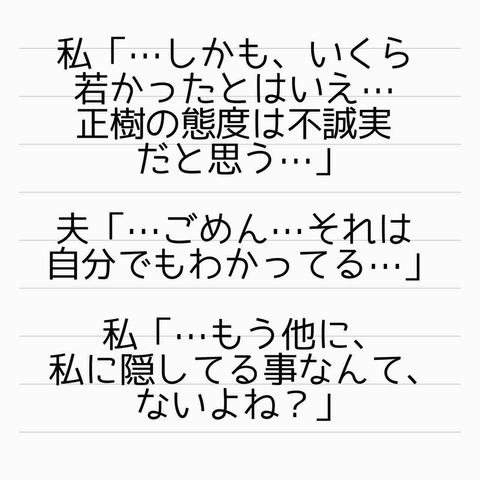 私「…しかも、いくら
若かったとはいえ…
正樹の態度は不誠実
だと思う…」
夫「…ごめん…それは
自分でもわかってる…」
私「…もう他に、
私に隠してる事なんて、
ないよね？」